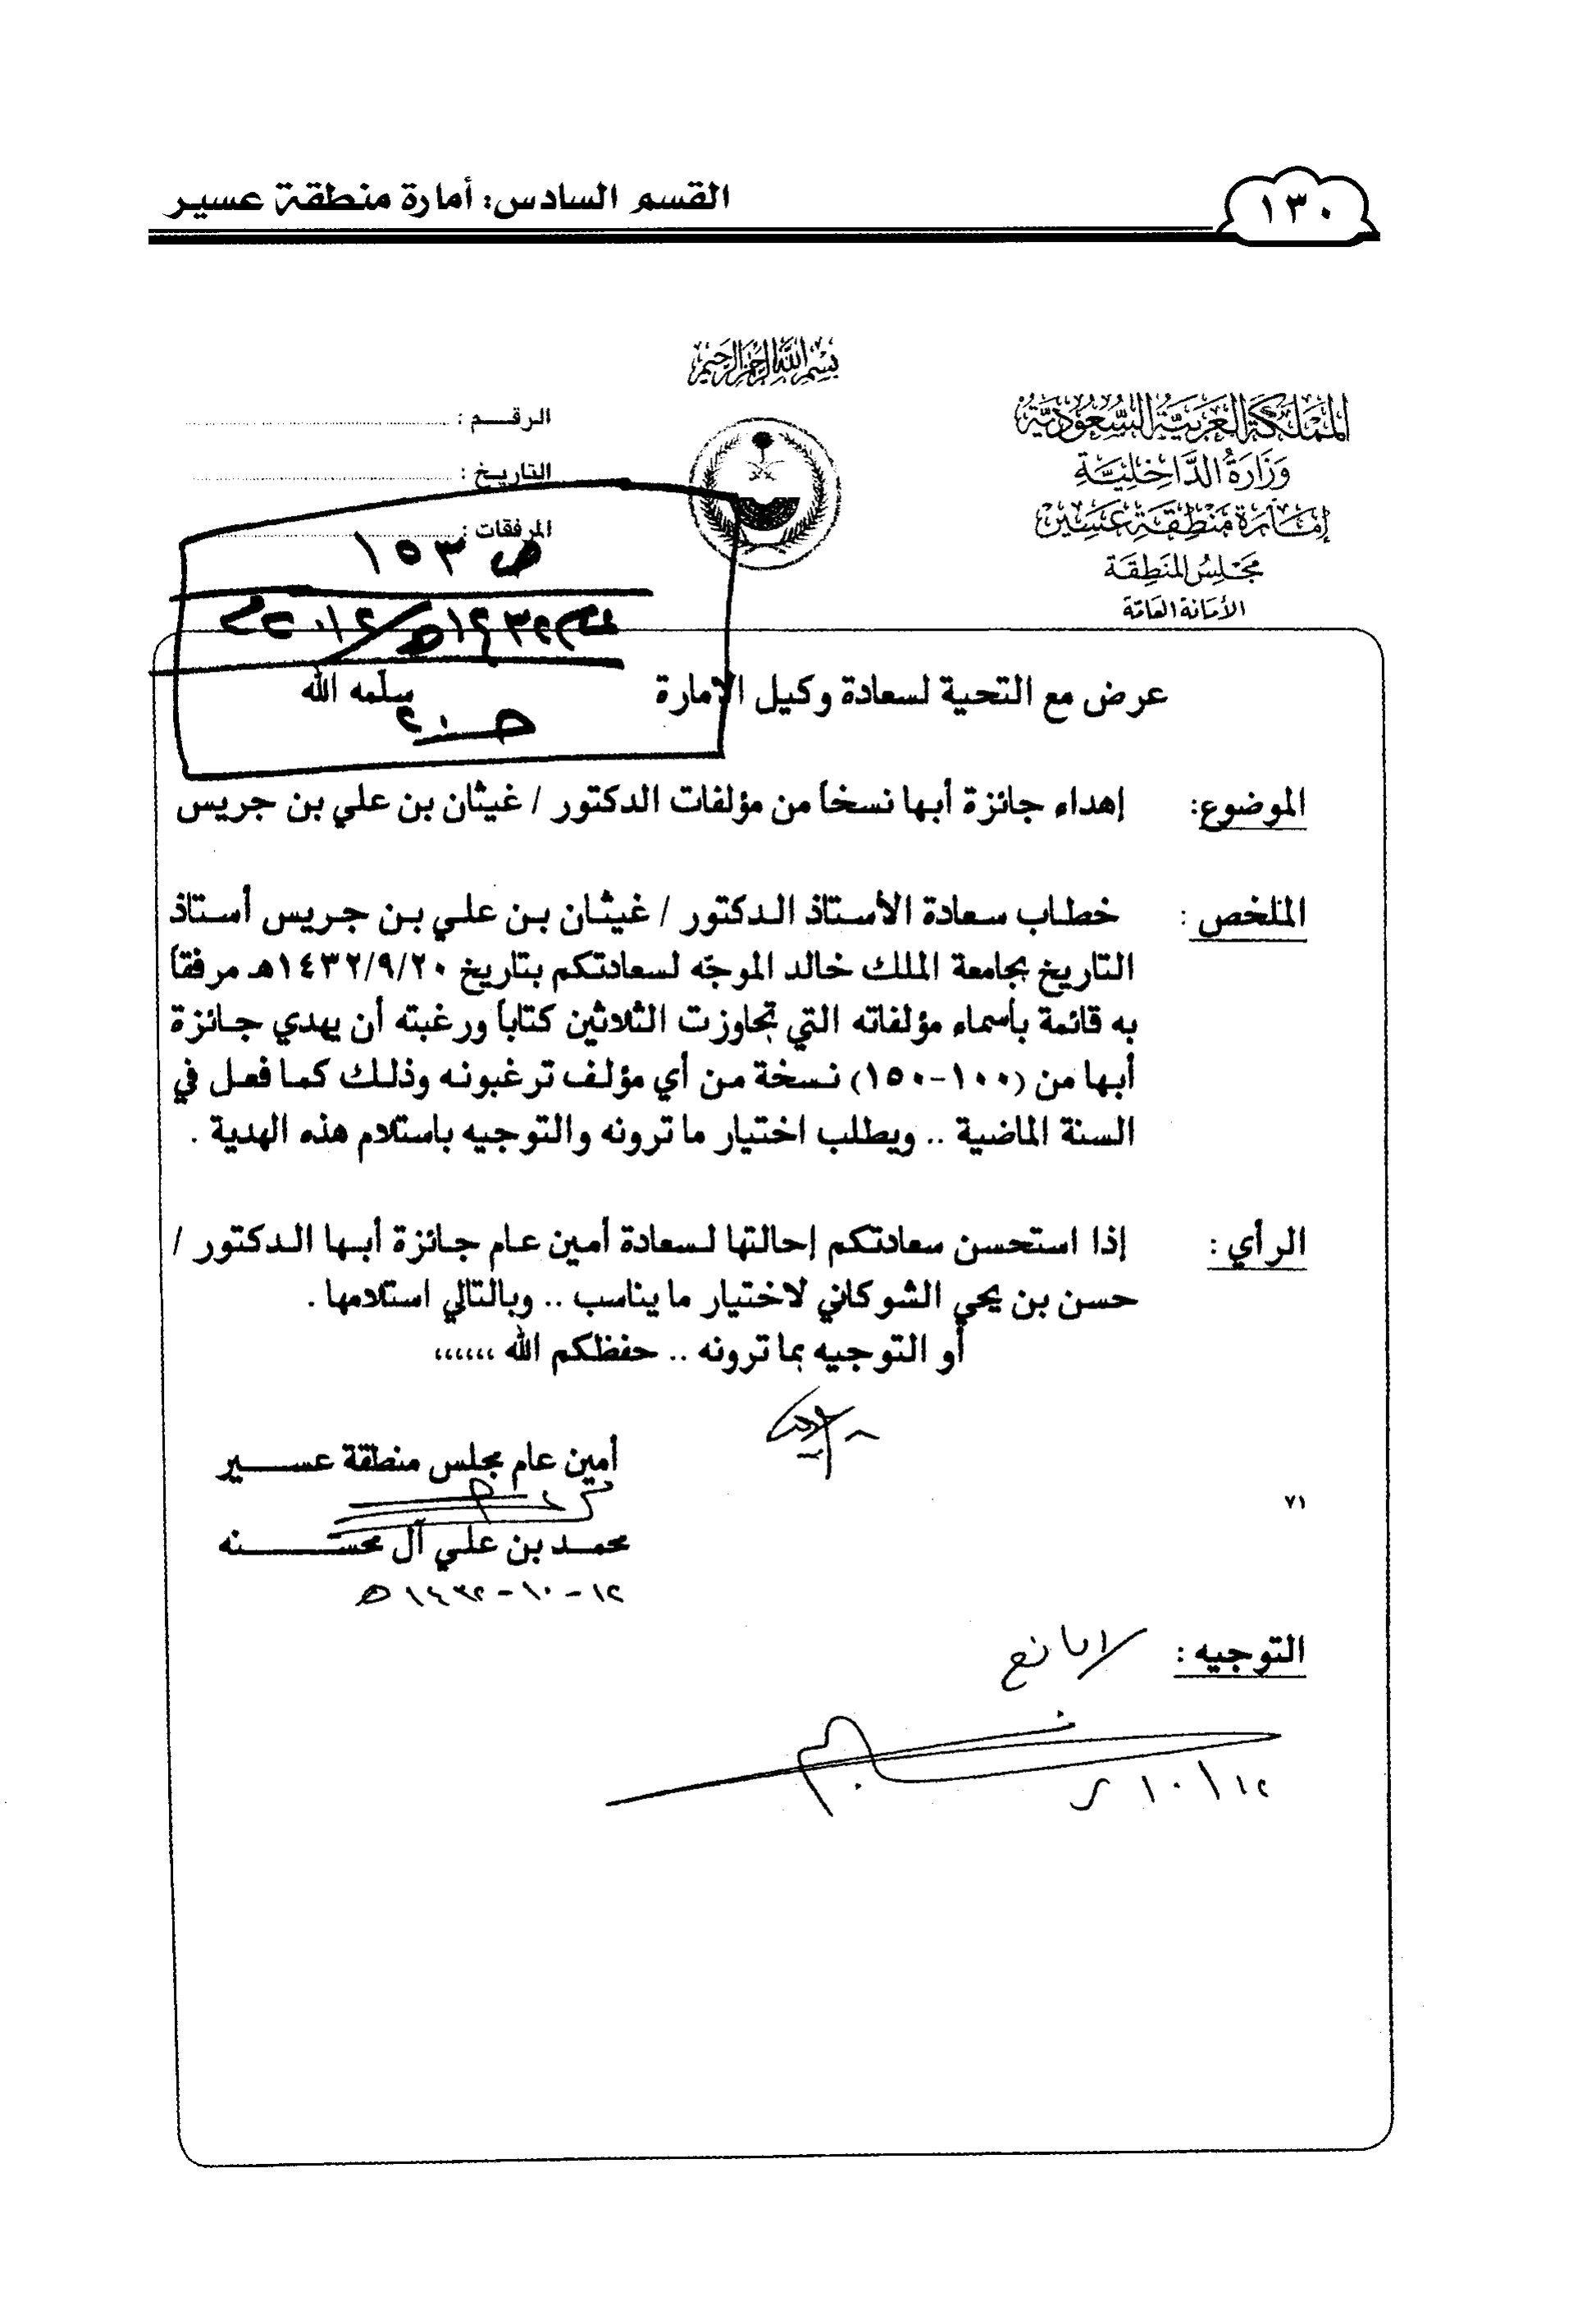 ١٣٠
القسم السادس: أمارة منطقة عسير
بسم الله الرحمن الرحيم
المملكة العربية السعودية
وزارة الداخلية
إمارة منطقة عسير
مجلس المنطقة
الأمانة العامة
الرقم :
التاريخ :
المرفقات :
ص ١٥٣
عرض مع التحية لسعادة وكيل الامارة سلّمه الله
الموضوع: إهداء جائزة أبها نسخاً من مؤلفات الدكتور / غيثان بن علي بن جريس
الملخص : خطاب سعادة الأستاذ الدكتور / غيثان بن علي بن جريس أستاذ
التاريخ بجامعة الملك خالد الموجّه لسعادتكم بتاريخ ١٤٣٢/٩/٢٠هـ مرفقاً
به قائمة بأسماء مؤلفاته التي تجاوزت الثلاثين كتاباً ورغبته أن يهدي جائزة
أبها من (١٠٠-١٥٠) نسخة من أي مؤلف ترغبونه وذلك كما فعل في
السنة الماضية .. ويطلب اختيار ما ترونه والتوجيه باستلام هذه الهدية .
الرأي : إذا استحسن سعادتكم إحالتها لسعادة أمين عام جائزة أبها الدكتور /
حسن بن يحي الشوكاني لاختيار ما يناسب .. وبالتالي استلامها .
أو التوجيه بما ترونه .. حفظكم الله ،،،،،،
أمين عام مجلس منطقة عسير
٧١
محمد بن علي آل محسنه
١٢-١٠-١٤٣٢هـ
التوجيه : لا مانع
١٠/١٢